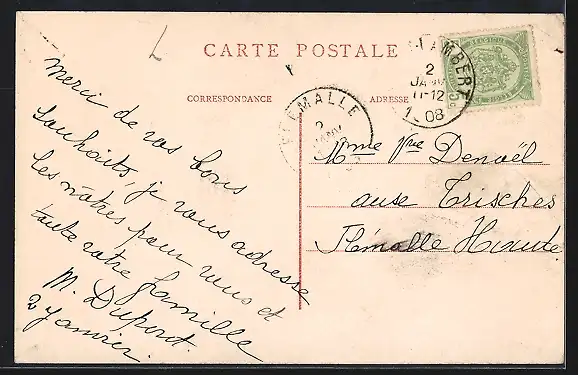 CARTE POSTALE
CORRESPONDANCE
ADRESSE
LAMBERT
2
JANV
11-12
1-08
FLEMALLE
2
JANV
Merci de vos bons
souhaits, je vous adresse
les nôtres pour vous et
toute votre famille
M. Dupont.
2 Janvier.
Mme Vve Denoël
aux Trisches
Flémalle Haute